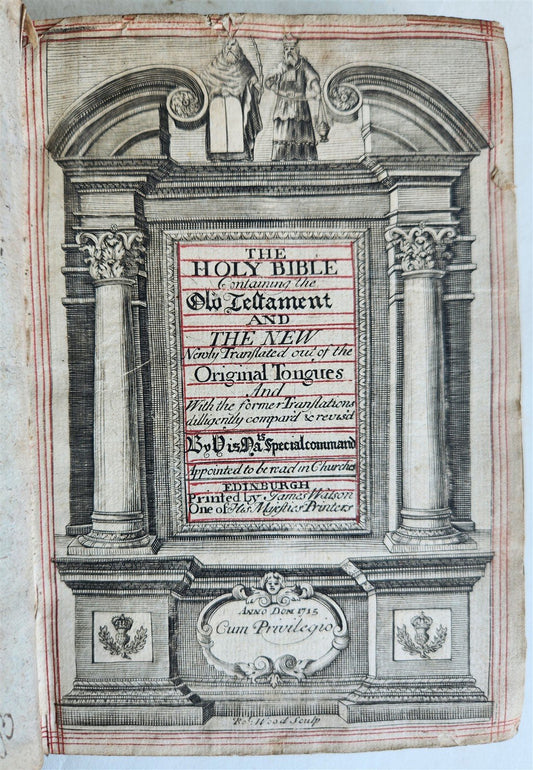 THE
HOLY BIBLE
Containing the
Old Testament
AND
THE NEW
Newly Translated out of the
Original Tongues
And
With the former Translations
dilligently compar'd & revis'd
By His Ma.ts Special command
Appointed to be read in Churches
EDINBURGH
Printed by James Watson
One of His Majesties Printers
ANNO DOM 1715
Cum Privilegio
Ro.t Wood Sculp